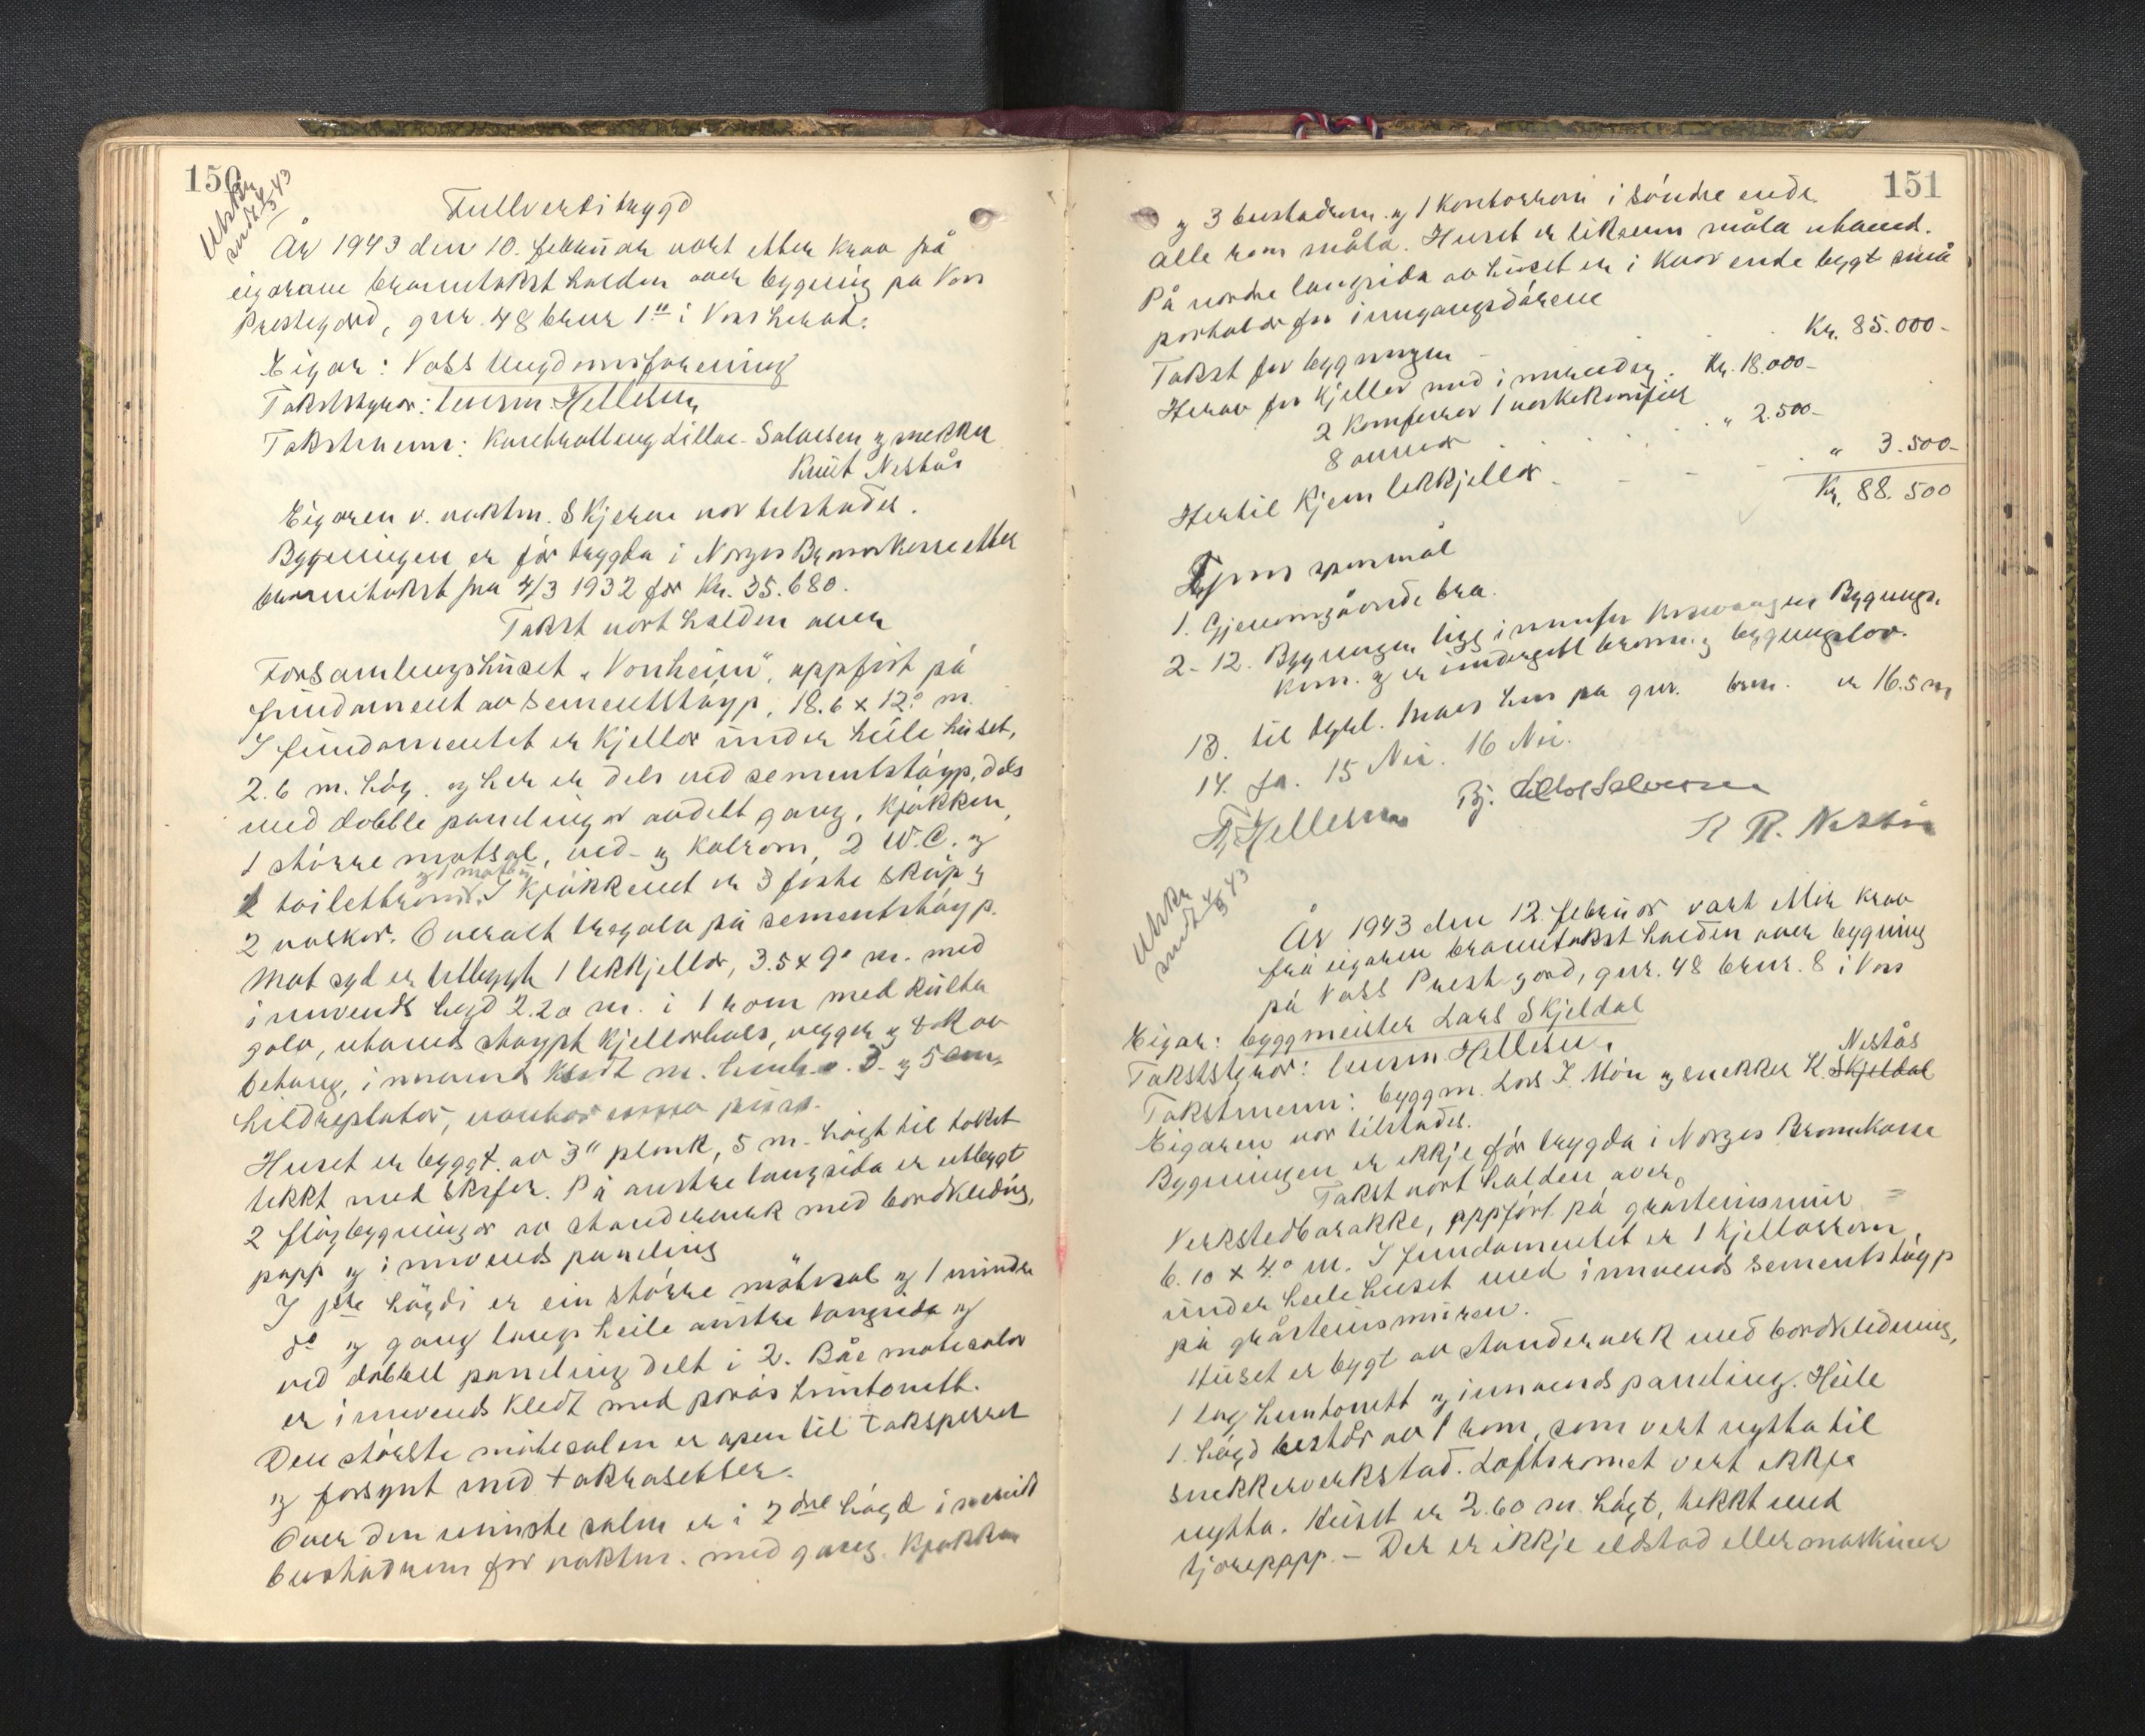 150
Utskr.
sendt 4/3 43
Fullverditrygd
År 1943 den 10. februar vart etter krav frå
eigarane branntakst halden over bygning på Voss
Prestegard, gnr. 48 bnr 1 i Voss herad.
Eigar: Voss Ungdomsforening
Takststyrar: lensm. Hellesen
Takstmenn: Lillas-Salvesen og snekker
Knut Nestås
Eigaren v. vaktm. Skjerve var tilstades.
Bygningen er før trygda i Norges Brannkasse etter
branntakst frå 4/3 1932 for Kr. 35.680.
Takst vart halden over
Forsamlingshuset "Vonheim", oppført på
fundament av sementstøyp, 18.6 x 12.0 m.
I fundamentet er kjellar under heile huset,
2.6 m. høg. og her er dels ved sementstøyp, dels
med dobble panelingar avdelt gang, kjøkken,
1 større matsal, ved- og kolrom, 2 W.C. og
2 toilettrom. I kjøkkenet er 3 faste skåp og
2 vaskar. Overalt tregolv på sementstøyp.
Mot syd er utbyggt 1 lekkjellar, 3.5 x 9.0 m. med
innvends høgd 2.20 m. i 1 rom med kulta
golv, utvends støypt kjellarhals, vegger og tak av
betong, innvends kledt m. og 5 cm.
Huset er byggt av 3" plank, 5 m. høgt til taket
tekkt med skifer. På austre langsida er utbygt
2 fløybygningar av standerverk med bordkledning,
papp og innvends paneling
I 1ste høgdi er ein større møtesal og 1 mindre
do og gang langs heile austre langsida og
ved dobbel paneling delt i 2. Båe møtesalar
er innvends kledt med porøs huntonett.
Den største møtesalen er open til taksperrer
og forsynt med takrosetter.
Over den minste salen er i 2dre høgd innreidt
bustadrom for vaktm. med gang. Kjøkken
151
og 3 bustadrom og 1 kontorrom i søndre ende.
Alle rom måla. Huset er liksom måla utvend.
På nordre langsida av huset er i kvar ende bygt små
portalar for inngangsdørene
Takst for bygningen Kr. 85.000-
Herav for kjellar med innreiding. Kr. 18.000-
2 komfyrer 1 vaskekomfyr
8 omnar " 2.500-
Hertil kjem lekkjellar " 3.500-
Kr. 88.500
spursmål
1. Gjenomgåande bra.
2-12. Bygningen ligg innafor Vossevangen Bygnings-
kom. og er undergitt brann- og bygningslov.
13. til hus på gnr. bnr. er 16.5 m
14. Ja. 15 Nei. 16 Nei.
Hellesen Bj. Lillas Salvesen
K R. Nestås
Utskr.
sendt 4/3 43
År 1943 den 12. februar vart etter krav
frå eigaren branntakst halden over bygning
på Voss Prestgard, gnr. 48 bnr. 8 i Voss
Eigar: byggmeister Lars Skjeldal
Takststyrar: lensm. Hellesen.
Nestås
Takstmenn: byggm. Lars I. Møn og snekker K. Skjeldal
Eigaren var tilstades.
Bygningen er ikkje før trygda i Norges Brannkasse
Takst vart halden over
Verkstedbarakke, oppført på gråsteinsmur
6.10 x 4.0 m. I fundamentet er 1 kjellarrom
under heile huset med innvends sementstøyp
på gråsteinsmuren.
Huset er bygt av standerverk med bordkledning,
1 lag huntonitt og innvends paneling. Heile
1. høgd består av 1 rom, som vert nytta til
snekkerverkstad. Loftsromet vert ikkje
nytta. Huset er 2.60 m. høgt, tekkt med
tjærepapp. - Der er ikkje eldstad eller maskiner